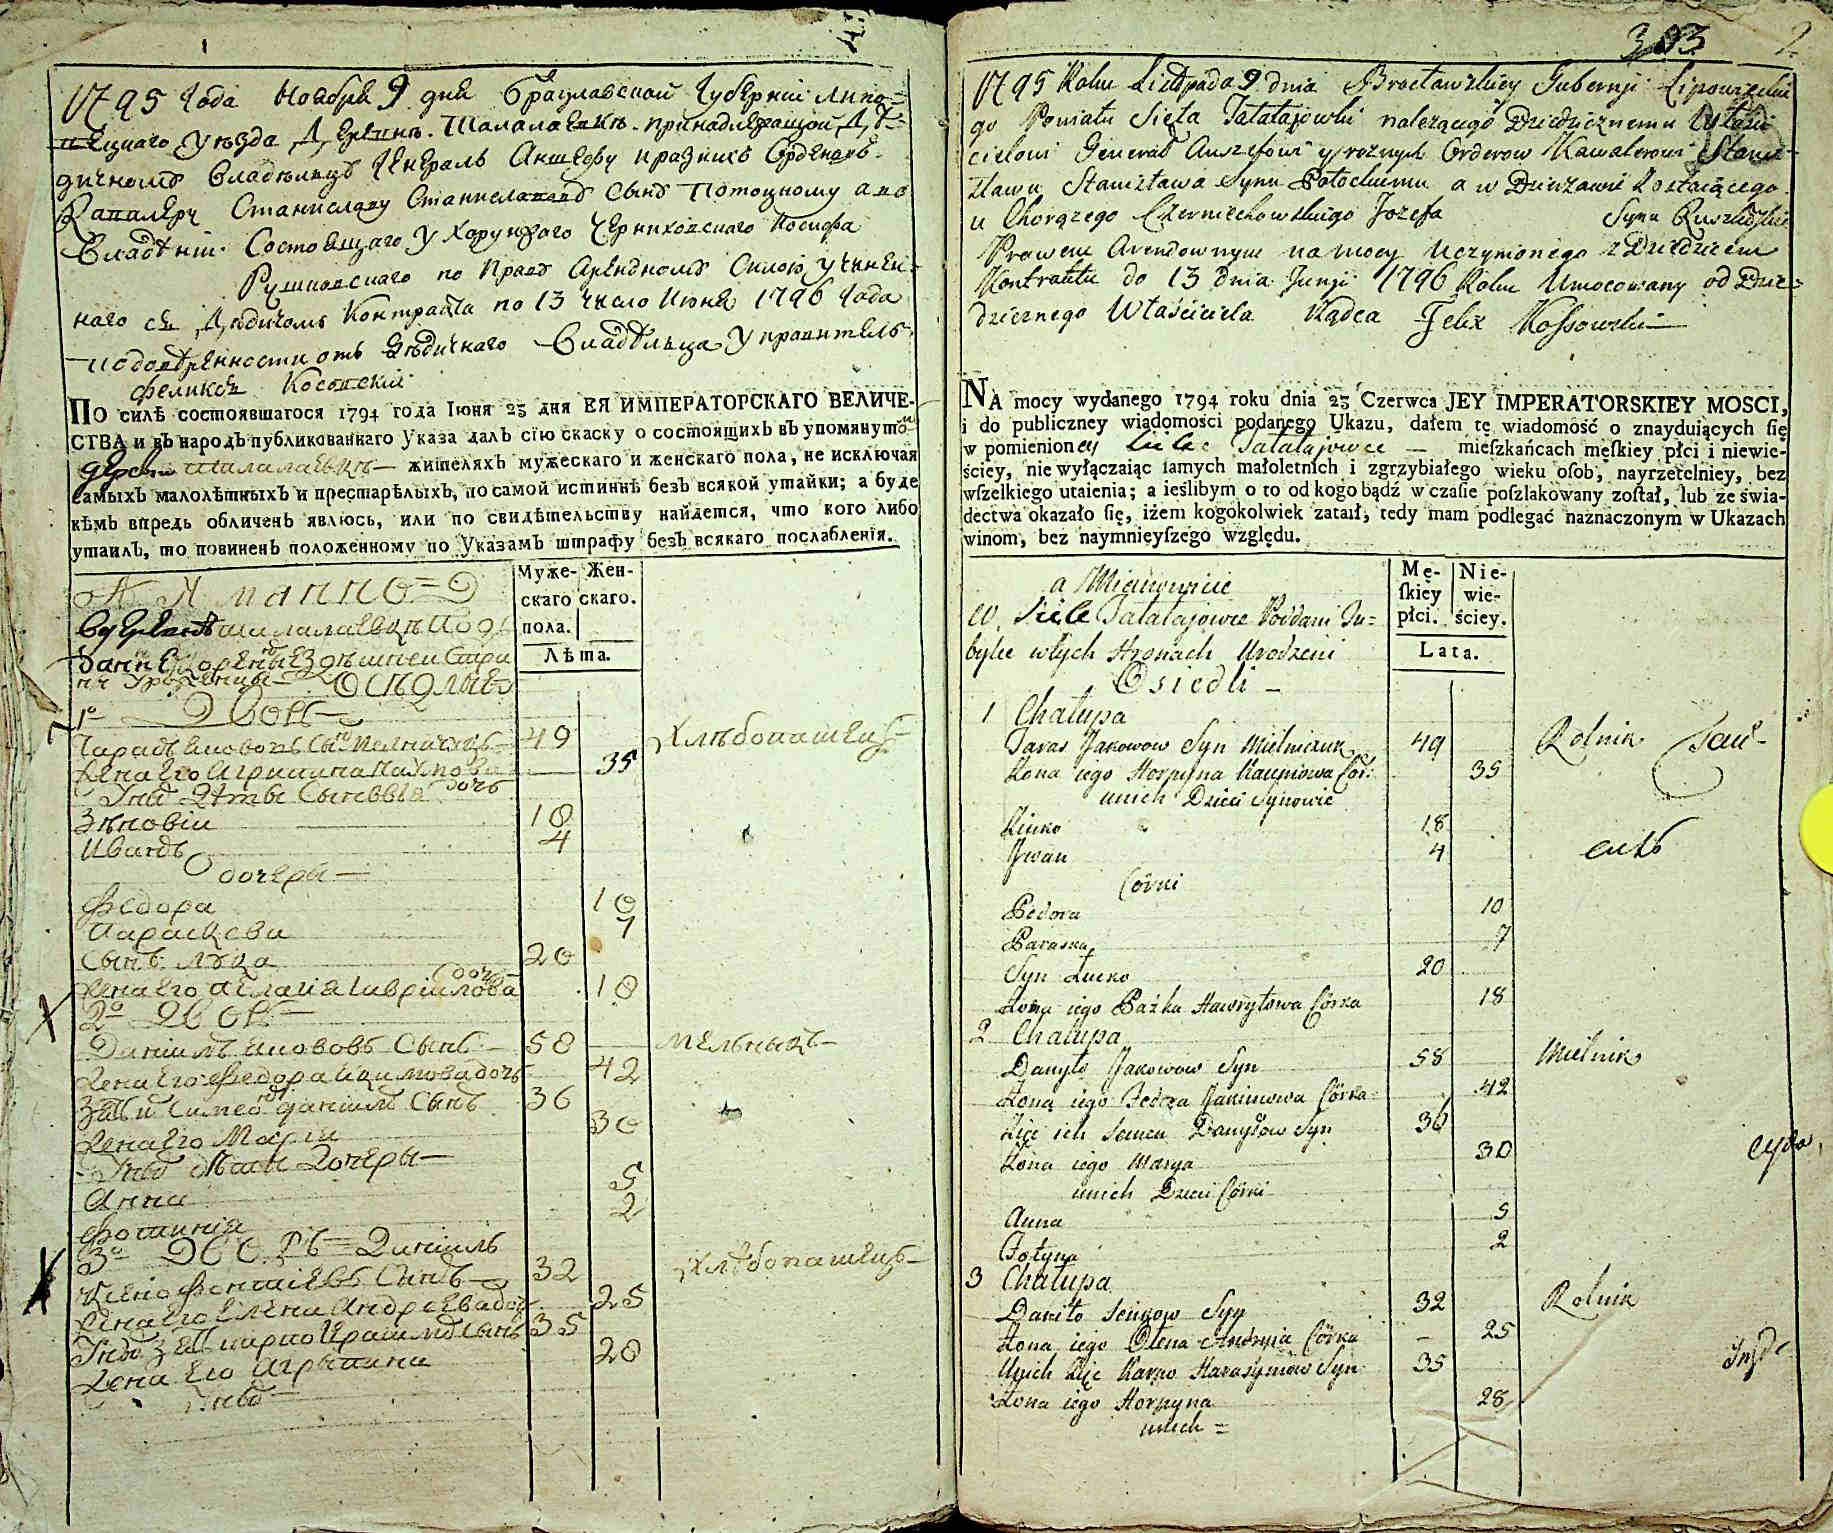 1795 Года Ноября 9 дня Брацлавской Губерніи Липо=
вецкаго Уѣзда Деревни Шалалаевки принадлежащой Дѣ=
дичному Владѣльцу Генералъ Аншефу и разныхъ Орденовъ
Кавалеру Станиславу Станиславовъ Сыну Потоцкому а во
Владѣніи Состоящаго у Хорунжого Черниховскаго Іосифа
Рушковскаго по Праву Арендному Силою учинен-
наго съ Дѣдичомъ Контракта по 13 число Июня 1796 Года
отъ Дѣдичнаго Владѣльца Управитель
Феликсъ Косовскій
По силѣ состоявшагося 1794 года Іюня 23 дня ЕЯ ИМПЕРАТОРСКАГО ВЕЛИЧЕ-
СТВА и въ народъ публикованнаго Указа далъ сію скаску о состоящихъ въ упомянутой
деревни Шалалаевки жителяхъ мужескаго и женскаго пола, не исключая
самыхъ малолѣтныхъ и престарѣлыхъ, по самой истиннѣ безъ всякой утайки; а буде
кѣмъ впредь обличенъ явлюсь, или по свидѣтельству найдется, что кого либо
утаилъ, то повиненъ положенному по Указамъ штрафу безъ всякаго послабленія.
Муже- Жен-
скаго скаго.
пола.
Лѣта.
А Имянно
Шалалаевки Под
1о Дворъ
49 Хлѣбопашецъ
Жена Его Агрипина Наумова дочь 35
У нихъ Дѣти Сыновья
Зѣновій 18
Иванъ 4
дочери
Федора 10
Параскева 7
Сынъ Лука 20
Жена Его 18
2о Дворъ
Даніилъ Якововъ Сынъ 58 Мельникъ
Жена Его Федора Якимова дочь 42
Даніилъ Сынъ 36
Жена Его Марія 30
У нихъ Дочери
Анна 5
Фотинія 2
3о Дворъ Даніилъ
Сынъ 32 Хлѣбопашецъ
Жена Его Елена Андреева дочь 25
Сынъ 35
Жена Его Агрипина 28
У нихъ
303 2
1795 Roku Listopada 9 dnia Brocławskiey Gubernji Lipowieckie
go Powiatu Sieła Tatałajowki należącego Dziedzicznemu Właści
cielowi Generał Anszefowi y roznych Orderow Kawalerowi Stani
sławu Stanisława Synu Potockiemu a w Dzierżawie Zostaiącego
u Chorązego Czerniechowskiego Jozefa Syna Ruszkowskie
Prawem Arendownym na mocy uczynionego z Dziedzicem
Kontraktu do 13 dnia Junji 1796 Roku Umocowany od Dzie=
dzicznego Właściciela Rądca Felix Kossowski
NA mocy wydanego 1794 roku dnia 23 Czerwca JEY IMPERATORSKIEY MOSCI,
i do publiczney wiadomości podanego Ukazu, dałem tę wiadomość o znayduiących ſię
w pomienioney Siele Tatałajowce — mieſzkańcach męſkiey płci i niewie-
ściey, nie wyłączaiąc ſamych małoletnich i zgrzybiałego wieku oſob, nayrzetelniey, bez
wſzelkiego utaienia; a ieślibym o to od kogo bądź w czaſie poſzlakowany zoſtał, lub że świa-
dectwa okazało ſię, iżem kogokolwiek zataił, tedy mam podlegać naznaczonym w Ukazach
winom, bez naymnieyſzego względu.
Mę- Nie-
ſkiey wie-
płci. ściey.
Lata.
a Mianowicie
W Siele Tatałajowce Poddani Ju=
bylce w tych Stronach Urodzeni
Osiedli
1 Chałupa
Taras Jakowow Syn Mielniczuk 49 Rolnik
Żona iego Horpyna Naumowa Cór: 35
unich Dzieci Synowie
Zinko 18
Jwan 4
Córki
Fedora 10
Paraska 7
Syn Łucko 20
Żona iego Paźka Hawryłowa Córka 18
2 Chałupa
Danyło Jakowow Syn 58 Mielnik
Żona iego Fedora Jakimowa Córka 42
Zięć ich Semen Danyłow Syn 36
Żona iego Marya 30
unich Dzieci Córki
Anna 5
Fotyna 2
3 Chałupa
Daniło Senkow Syn 32 Rolnik
Żona iego Olena Andreja Córka 25
Unich Zięć Karpo Harasymow Syn 35
Żona iego Horpyna 28
unich =